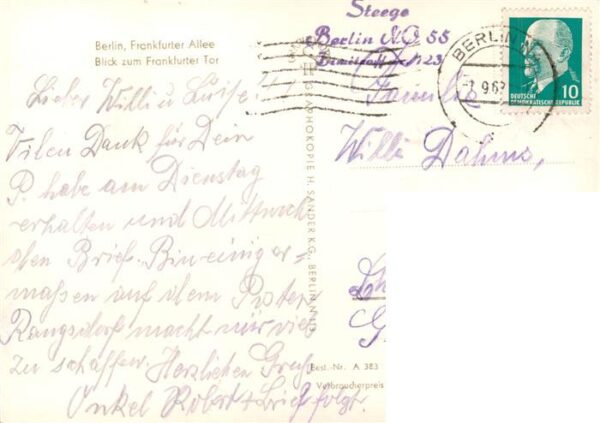 Berlin, Frankfurter Allee
Blick zum Frankfurter Tor
Lieber Willi u. Luise!
Vilen Dank für Dein
P. habe am Dienstag
erhalten und Mittwoch
den Brief. Bin einiger=
maßen auf dem Posten
Rangsdorf macht mir viel
zu schaffen Herzlichen Gruß
Onkel Robert + Brief folgt.
APHOKOPIE H. SANDER KG., BERLIN N
Best.-Nr. A 383
Verbraucherpreis
Steege
Berlin NO 55
23
BERLIN
9.6
DEUTSCHE
DEMOKRATISCHE REPUBLIK
10
Familie
Willi Dahms,